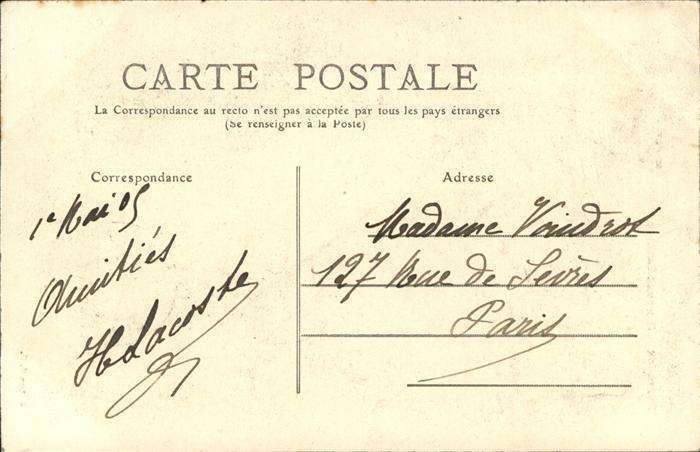 CARTE POSTALE
La Correspondance au recto n'est pas acceptée par tous les pays étrangers
(Se renseigner à la Poste)
Correspondance
1e Mai 05
Amitiés
HLacoste
Adresse
Madame
127 Rue de Sèvres
Paris